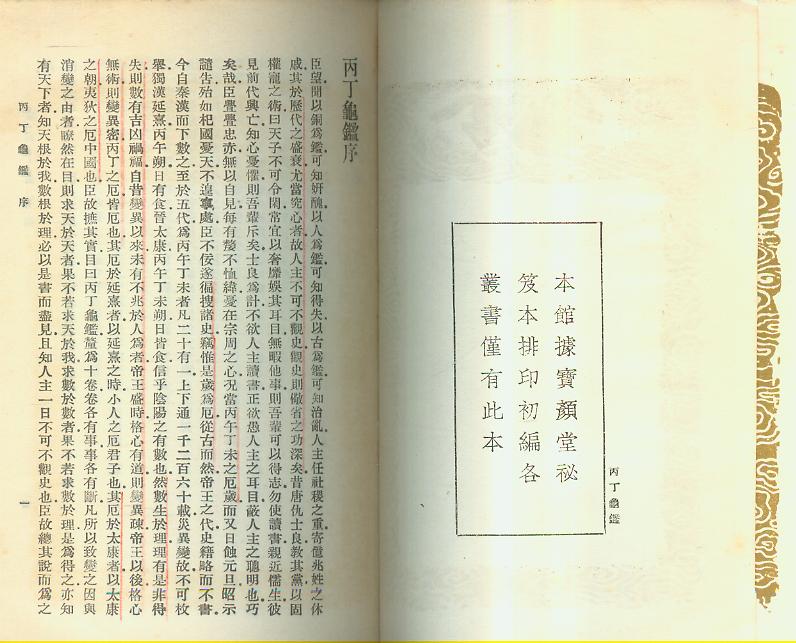 丙丁龜鑑
本館據寶顏堂祕
笈本排印初編各
叢書僅有此本
丙丁龜鑑序
臣望聞以銅爲鑑可知妍醜以人爲鑑可知得失以古爲鑑可知治亂人主任社稷之重寄億兆姓之休
戚其於歷代之盛衰尤當究心者故人主不可不觀史觀史則儆省之功深矣昔唐仇士良教其黨以固
權寵之術曰天子不可令閑常宜以奢靡娛其耳目無暇他事則吾輩可以得志勿使讀書親近儒生彼
見前代興亡知心憂懼則吾輩斥矣士良爲計不欲人主讀書正欲愚人主之耳目蔽人主之聰明也巧
矣哉臣亹亹忠赤無以自見每有嫠不恤緯憂在宗周之心況當丙午丁未之厄歲而又日蝕元旦昭示
譴告殆如杞國憂天不遑寧處臣不佞遂徧搜諸史竊惟是歲爲厄從古而然帝王之代史籍略而不書
今自秦漢而下數之至於五代爲丙午丁未者凡二十有一上下通一千二百六十載災異變故不可枚
舉獨漢延熹丙午朔日有食晉太康丙午丁未朔日皆食信乎陰陽之有數也然數生於理理有是非得
失則數有吉凶禍福自昔變異以來未有不兆於人爲者帝王盛時格心有道則變異疎帝王以後格心
無術則變異密丙丁之厄皆厄也其厄於延熹者以延熹之時小人之厄君子也其厄於太康者以太康
之朝夷狄之厄中國也臣故摭其實目曰丙丁龜鑑釐爲十卷卷各有事事各有斷凡所以致變之因與
消變之由者瞭然在目則求天於天者果不若求天於我求數於數者果不若求數於理是爲得之亦知
有天下者知天根於我數根於理必以是書而盡見且知人主一日不可不觀史也臣故總其說而爲之
丙丁龜鑑 序 一